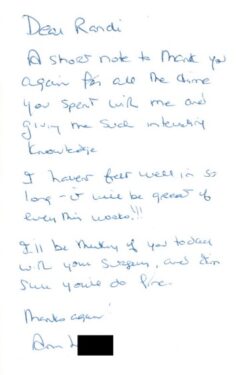 Dear Randi
A short note to thank you
again for all the time
you spent with me and
giving me such interesting
knowledge
I haven't felt well in so
long - it will be great if
even this works!!!
I'll be thinking of you today
with your surgery, and I'm
sure you'll do fine.
Thanks again
Ann